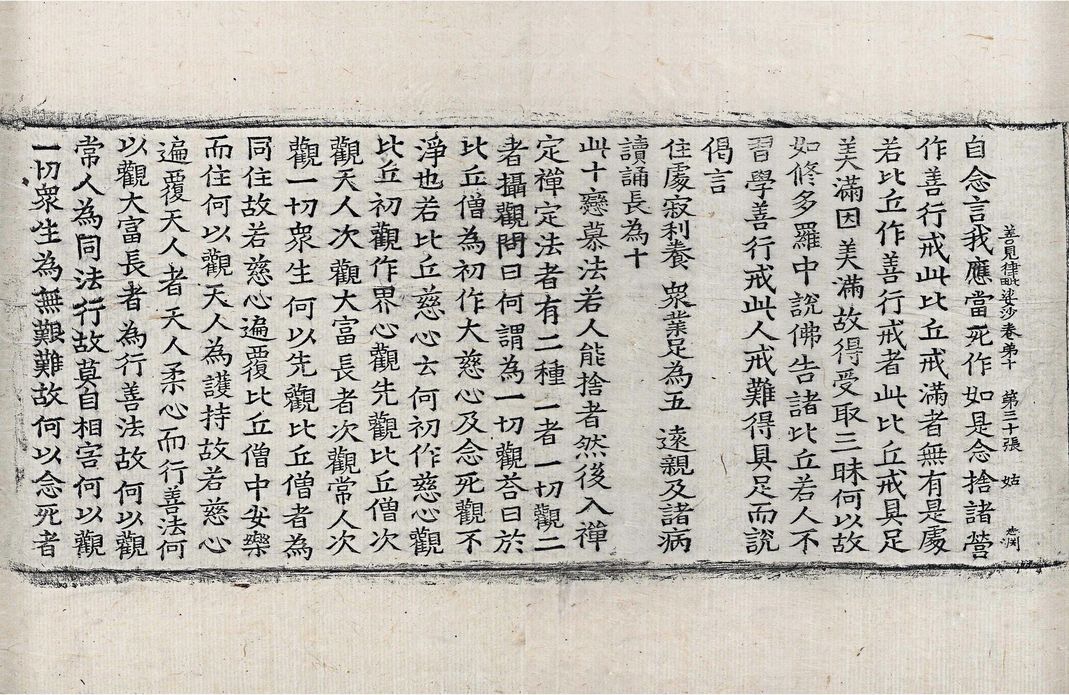 善見律毗婆沙卷第十 第三十張 姑
自念言我應當死作如是念捨諸營
作善行戒此比丘戒滿者無有是處
若比丘作善行戒者此比丘戒具足
美滿因美滿故得受取三昧何以故
如修多羅中說佛告諸比丘若人不
習學善行戒此人戒難得具足而說
偈言
住處寂利養 衆業足為五 遠親及諸病
讀誦長為十
此十戀慕法若人能捨者然後入禪
定禪定法者有二種一者一切觀二
者攝觀問曰何謂為一切觀荅曰於
比丘僧為初作大慈心及念死觀不
淨也若比丘慈心去何初作慈心觀
比丘初觀作界心觀先觀比丘僧次
觀天人次觀大富長者次觀常人次
觀一切衆生何以先觀比丘僧者為
同住故若慈心遍覆比丘僧中安樂
而住何以觀天人為護持故若慈心
遍覆天人者天人柔心而行善法何
以觀大富長者為行善法故何以觀
常人為同法行故莫自相害何以觀
一切衆生為無艱難故何以念死者